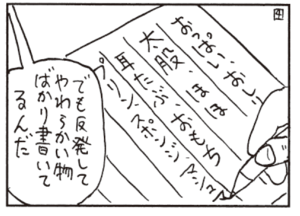 おっぱい、おしり
太股、ほほ
耳たぶ、おもち
プリン、スポンジ、マシュ
でも反発して
やわらかい物
ばかり書いて
るんだ